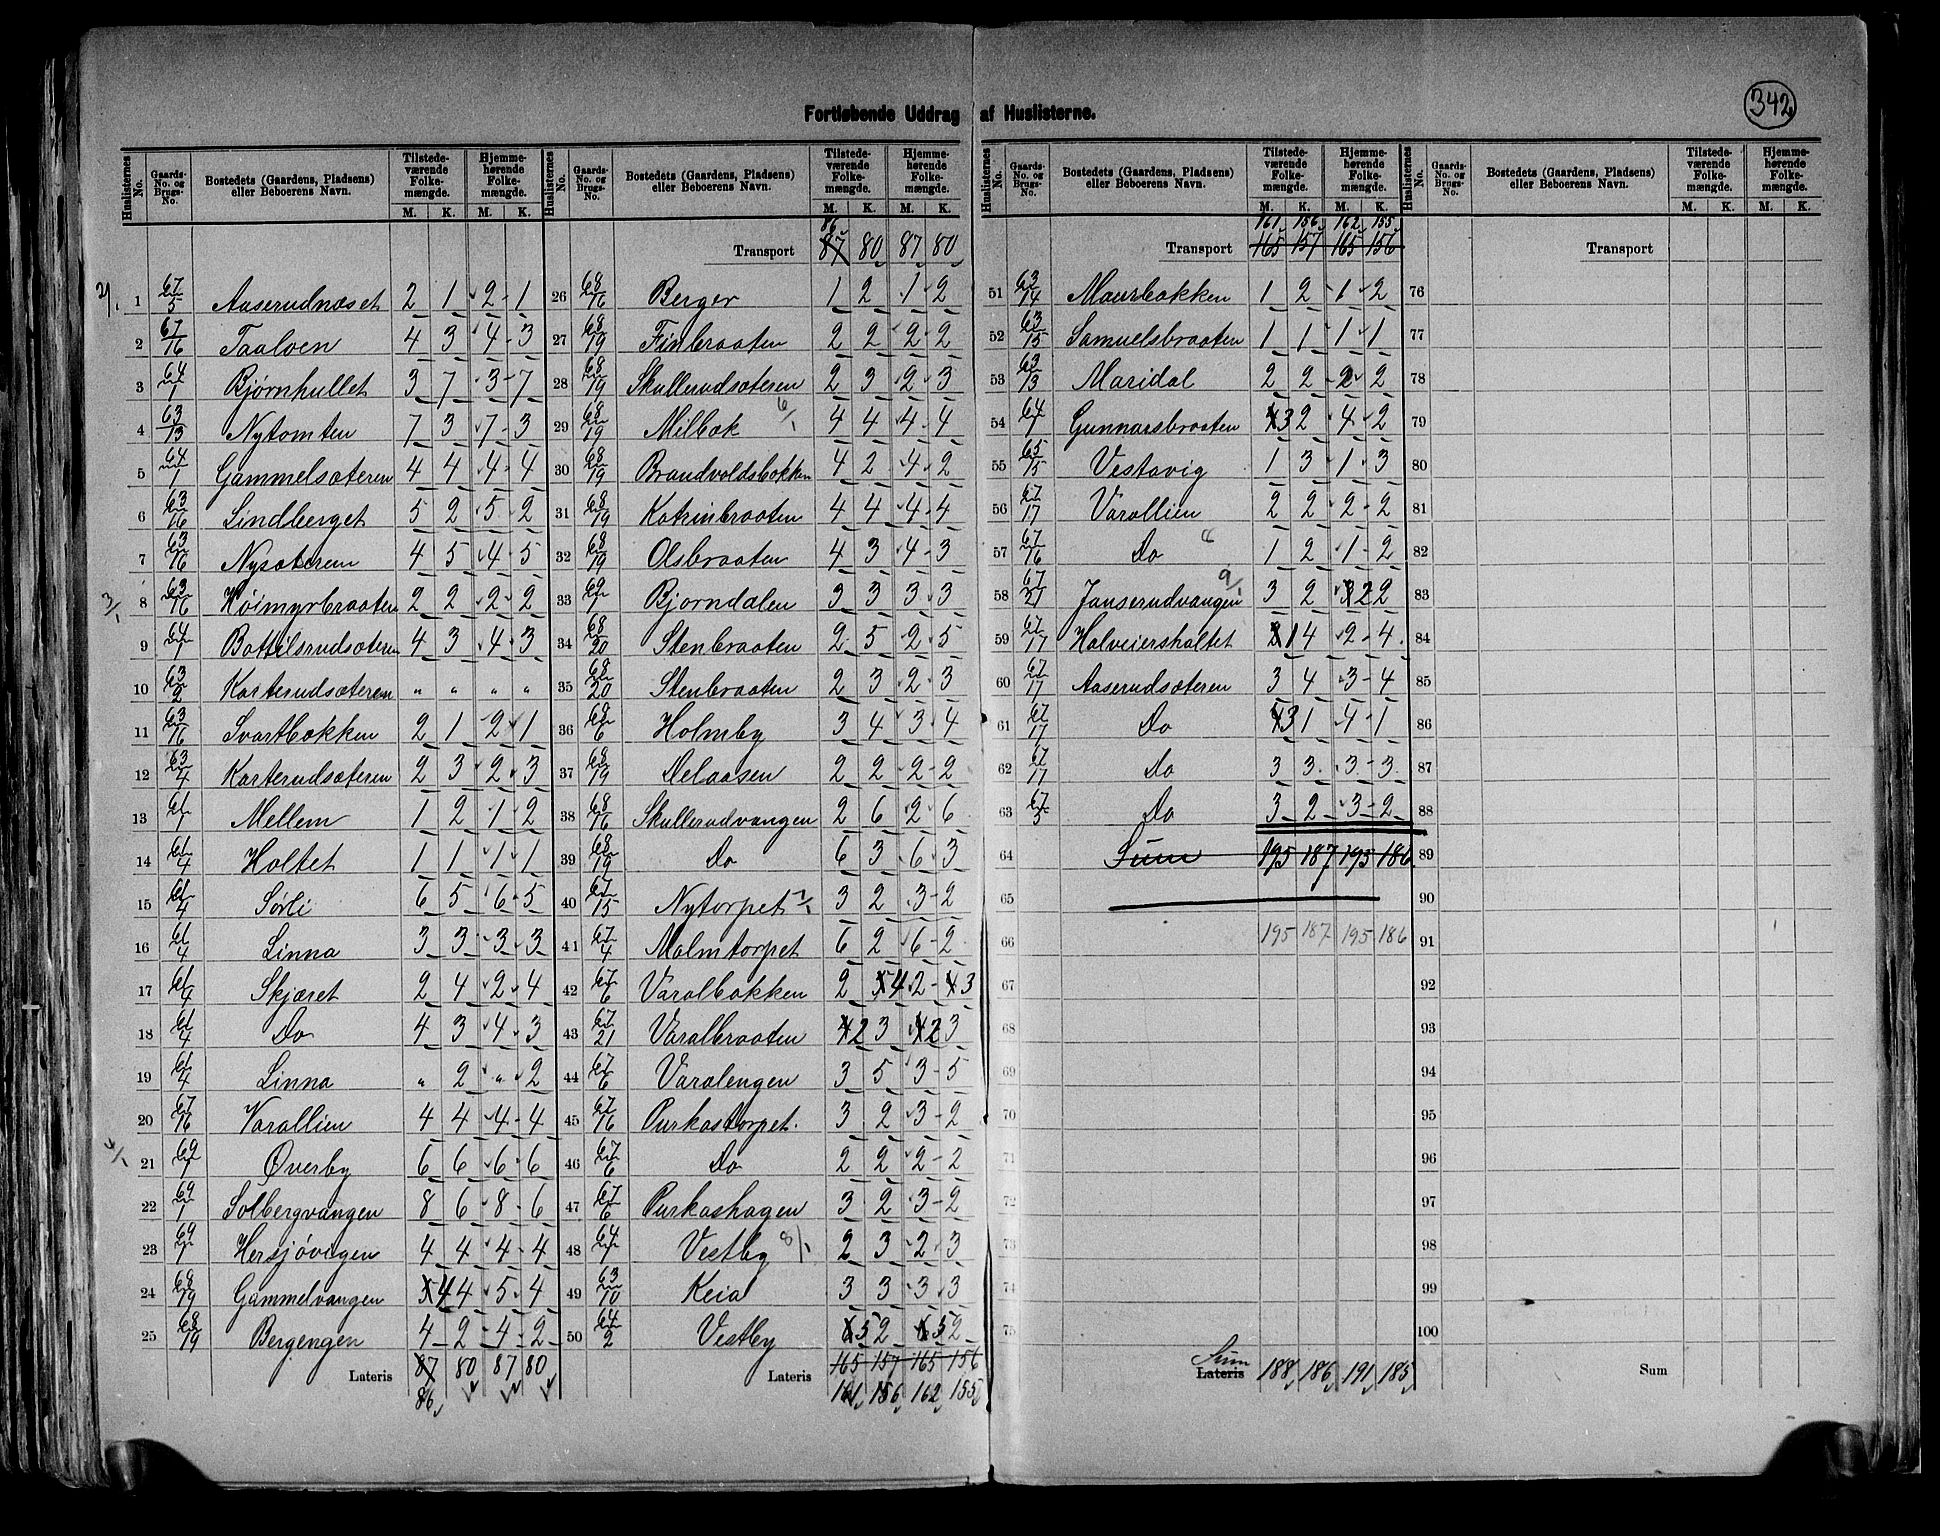 342
Fortløbende Uddrag af Huslisterne.
Huslisternes No. | Gaards-No. og Brugs-No. | Bostedets (Gaardens, Pladsens) eller Beboerens Navn. | Tilstedeværende Folkemængde. M. K. | Hjemmehørende Folkemængde. M. K.
2/1.
1 67/5 Aaserudnæset 2 1 2 1
2 67/16 Taaloen 4 3 4 3
3 64/1 Bjørnhullet 3 7 3 7
4 63/13 Nytomten 7 3 7 3
5 64/1 Gammelsæteren 4 4 4 4
6 63/16 Lindberget 5 2 5 2
7 63/16 Nysæteren 4 5 4 5
3/1
8 63/16 Høimyrbraaten 2 2 2 2
9 64/1 Bottilsrudsæteren 4 3 4 3
10 63/2 Karterudsæteren " " " "
11 63/16 Svartbækken 2 1 2 1
12 63/4 Karterudsæteren 2 3 2 3
13 61/1 Mellem 1 2 1 2
14 61/4 Holtet 1 1 1 1
15 61/4 Sørli 6 5 6 5
16 61/4 Linna 3 3 3 3
17 61/4 Skjæret 2 4 2 4
18 61/4 Do 4 3 4 3
19 61/4 Linna " 2 " 2
20 67/16 Varallien 4 4 4 4
4/1
21 69/1 Øverby 6 6 6 6
22 69/1 Solbergvangen 8 6 8 6
23 69/1 Hersjøvigen 4 4 4 4
24 68/19 Gammelvangen 5 4 4 5 4
25 68/19 Bergengen 4 2 4 2
Lateris 87 80 87 80
86
86
Transport 87 80 87 80
26 68/16 Berger 1 2 1 2
27 68/19 Finbraaten 2 2 2 2
28 68/19 Skullerudsæteren 2 3 2 3
29 68/19 Milbak 6/1 4 4 4 4
30 68/19 Brandvoldsbækken 4 2 4 2
31 68/19 Katrinbraaten 4 4 4 4
32 68/19 Olsbraaten 4 3 4 3
33 69/1 Bjørndalen 3 3 3 3
34 68/20 Stenbraaten 2 5 2 5
35 68/20 Stenbraaten 2 3 2 3
36 68/6 Holmby 3 4 3 4
37 68/19 Delaasen 2 2 2 2
38 68/16 Skullerudvangen 2 6 2 6
39 68/19 Do 6 3 6 3
40 67/15 Nytorpet 7/1 3 2 3 2
41 67/4 Malmtorpet 6 2 6 2
42 67/6 Varalbækken 2 5 4 2 4 3
43 67/21 Varalbraaten 4 2 3 4 2 3
44 67/6 Varalengen 3 5 3 5
45 67/16 Purkastorpet. 3 2 3 2
46 67/6 Do 2 2 2 2
47 67/6 Purkashagen 3 2 3 2
48 64/1 Vestby 8/1 2 3 2 3
49 63/10 Keia 3 3 3 3
50 64/2 Vestby 6 5 2 6 5 2
Lateris 165 157 165 156
161 156 162 155
161 156 162 155
Transport 165 157 165 156
51 63/14 Maurbækken 1 2 1 2
52 63/15 Samuelsbraaten 1 1 1 1
53 63/13 Maridal 2 2 2 2
54 64/1 Gunnarsbraaten 4 3 2 4 2
55 65/15 Vestavig 1 3 1 3
56 67/17 Varallien 2 2 2 2
57 67/16 Do 1 2 1 2
58 67/21 Janserudvangen 9/1 3 2 3 2 2
59 67/17 Halveiersholtet 2 1 4 2 4
60 67/17 Aaserudsæteren 3 4 3 4
61 67/17 Do 4 3 1 4 1
62 67/17 Do 3 3 3 3
63 67/5 Do 3 2 3 2
64 Sum 195 187 195 186
65
66 195 187 195 186
67
68
69
70
71
72
73
74
75
Sum
Lateris 188 186 191 185
Transport
76
77
78
79
80
81
82
83
84
85
86
87
88
89
90
91
92
93
94
95
96
97
98
99
100
Sum